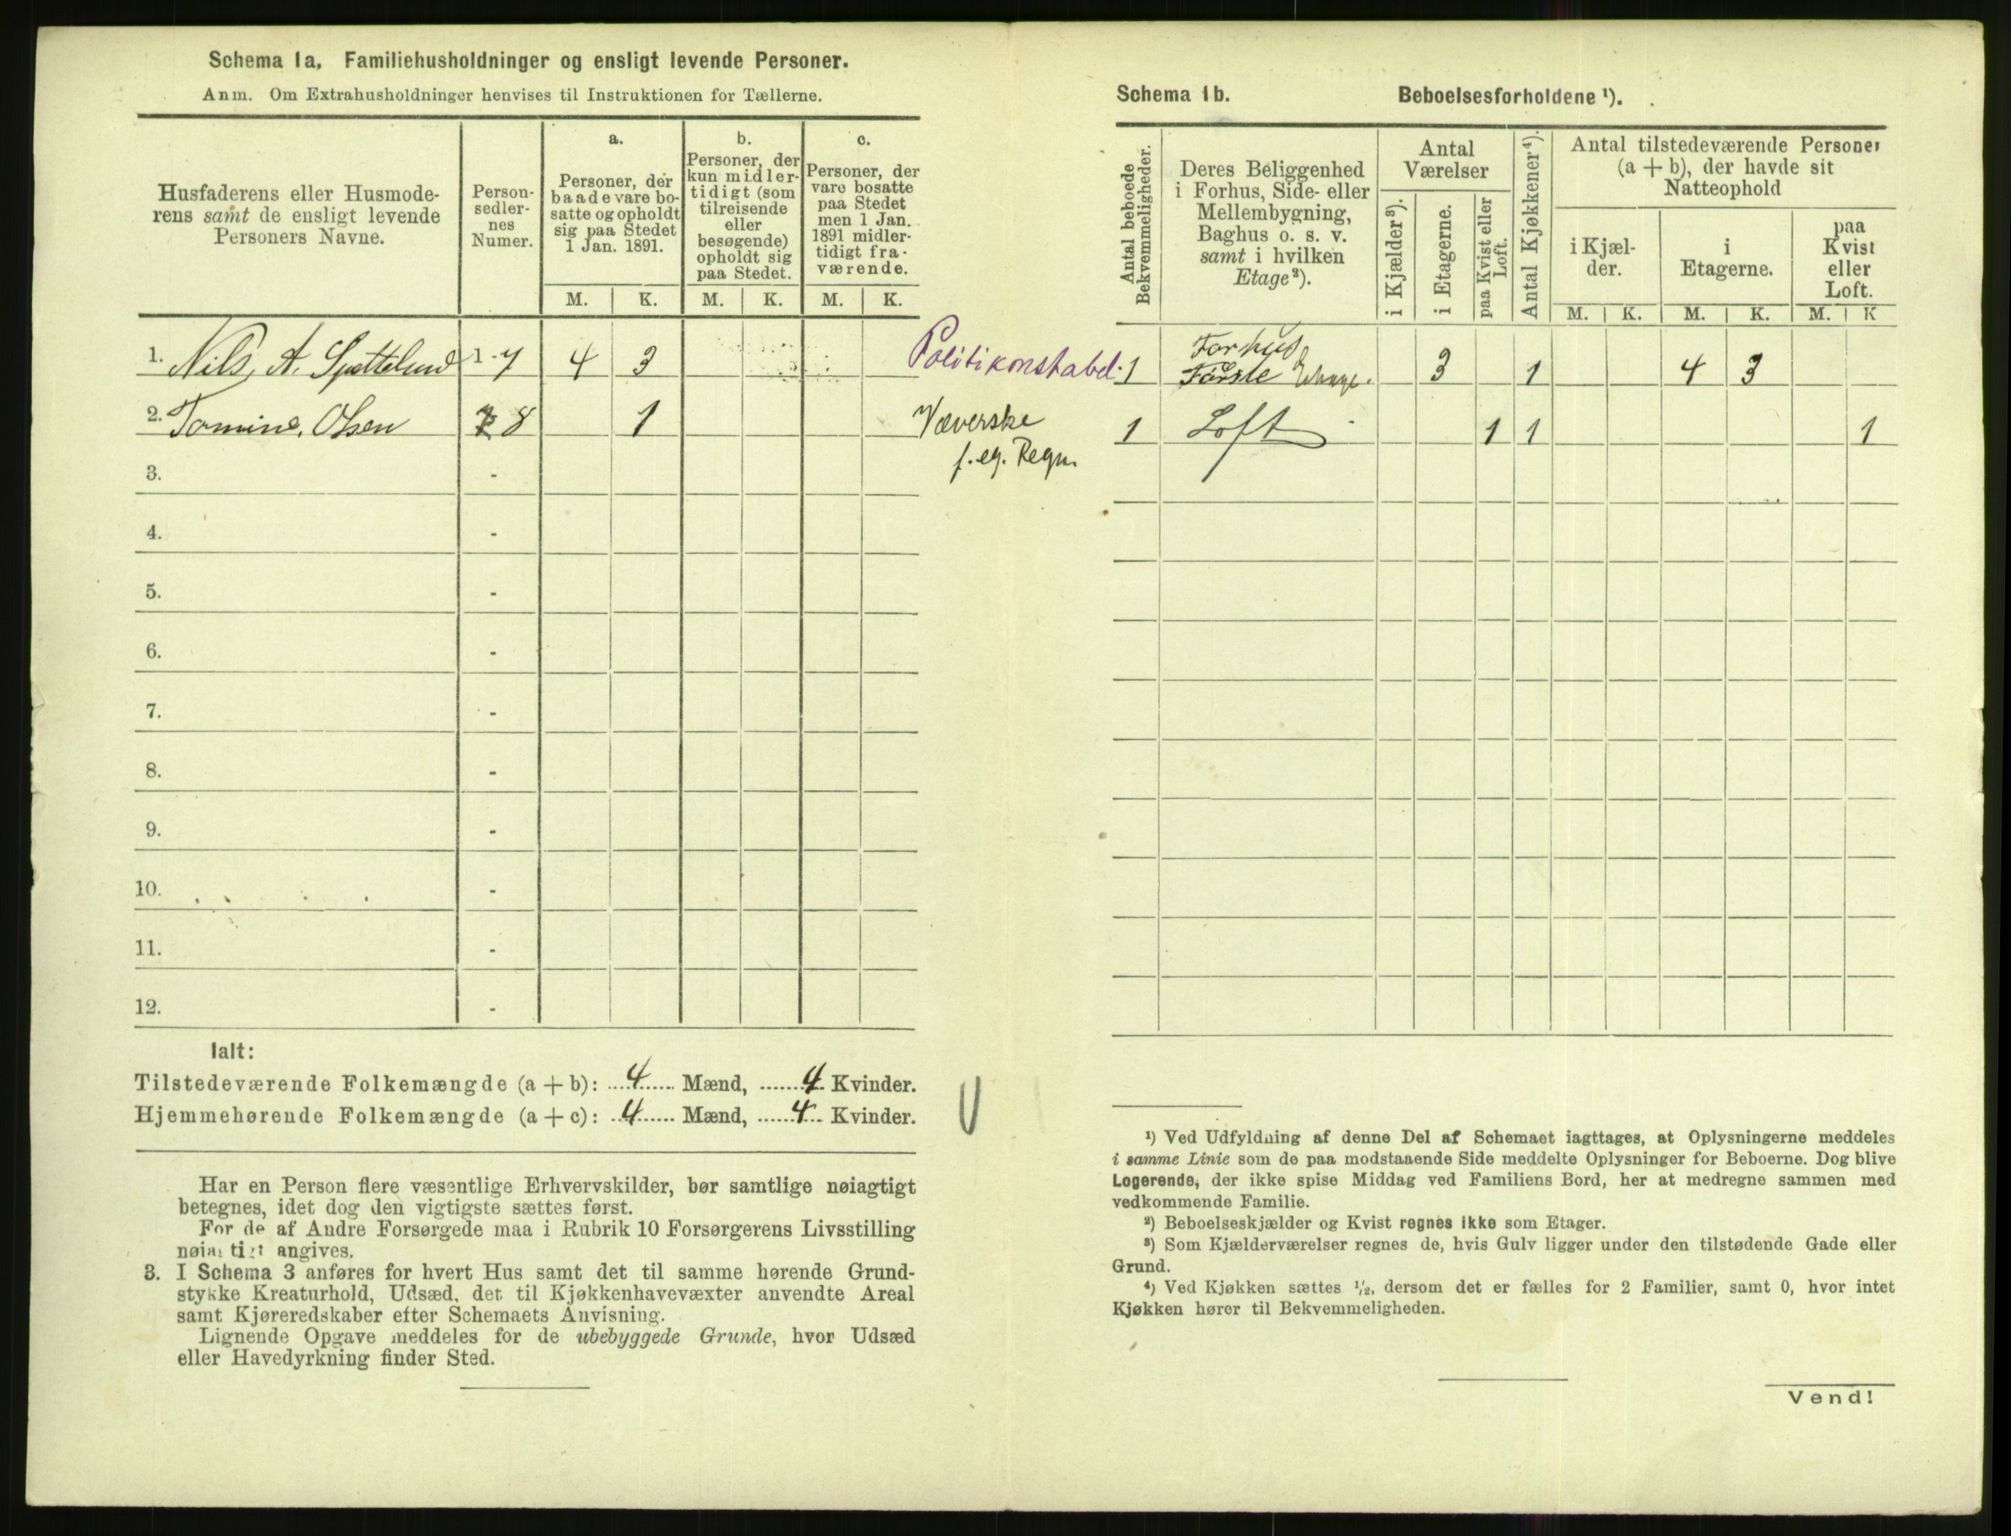 Schema 1a. Familiehusholdninger og ensligt levende Personer.
Anm. Om Extrahusholdninger henvises til Instruktionen for Tællerne.
Husfaderens eller Husmode-
rens samt de ensligt levende
Personers Navne.
Person-
sedler-
nes
Numer.
a.
Personer, der
baade vare bo-
satte og opholdt
sig paa Stedet
1 Jan. 1891.
b.
Personer, der
kun midler-
tidigt (som
tilreisende
eller
besøgende)
opholdt sig
paa Stedet.
c.
Personer, der
vare bosatte
paa Stedet
men 1 Jan.
1891 midler-
tidigt fra-
værende.
M. K. M. K. M. K.
1. Nils, A. 1 - 7 4 3 Politikonstabel.
2. Tomine, Olsen 8 1 Væverske
f. eg. Regn.
3. -
4. -
5. -
6. -
7. -
8. -
9. -
10. -
11. -
12. -
Ialt:
Tilstedeværende Folkemængde (a + b): 4 Mænd, 4 Kvinder.
Hjemmehørende Folkemængde (a + c): 4 Mænd, 4 Kvinder.
Har en Person flere væsentlige Erhvervskilder, bør samtlige nøiagtigt
betegnes, idet dog den vigtigste sættes først.
For de af Andre Forsørgede maa i Rubrik 10 Forsørgerens Livsstilling
nøiagtigt angives.
3. I Schema 3 anføres for hvert Hus samt det til samme hørende Grund-
stykke Kreaturhold, Udsæd, det til Kjøkkenhavevæxter anvendte Areal
samt Kjøreredskaber efter Schemaets Anvisning.
Lignende Opgave meddeles for de ubebyggede Grunde, hvor Udsæd
eller Havedyrkning finder Sted.
Schema 1b. Beboelsesforholdene ¹).
Antal beboede
Bekvemmeligheder.
Deres Beliggenhed
i Forhus, Side- eller
Mellembygning,
Baghus o. s. v.
samt i hvilken
Etage²).
Antal
Værelser
i Kjælder³).
i Etagerne.
paa Kvist eller
Loft.
Antal Kjøkkener⁴).
Antal tilstedeværende Personer
(a + b), der havde sit
Natteophold
i Kjæl-
der.
i
Etagerne.
paa
Kvist
eller
Loft.
M. K. M. K. M. K
1 Forhus
Første Etage. 3 1 4 3
1 Loft 1 1 1
¹) Ved Udfyldning af denne Del af Schemaet iagttages, at Oplysningerne meddeles
i samme Linie som de paa modstaaende Side meddelte Oplysninger for Beboerne. Dog blive
Logerende, der ikke spise Middag ved Familiens Bord, her at medregne sammen med
vedkommende Familie.
²) Beboelseskjælder og Kvist regnes ikke som Etager.
³) Som Kjælderværelser regnes de, hvis Gulv ligger under den tilstødende Gade eller
Grund.
⁴) Ved Kjøkken sættes ½, dersom det er fælles for 2 Familier, samt 0, hvor intet
Kjøkken hører til Bekvemmeligheden.
Vend!